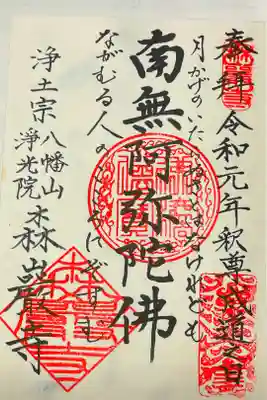 奉拝 令和元年釈尊成道之日
月かげのいたらぬさとはなけれども
南無阿弥陀佛
ながむる人のこころにぞすむ
浄土宗
八幡山
浄光院
森巖寺